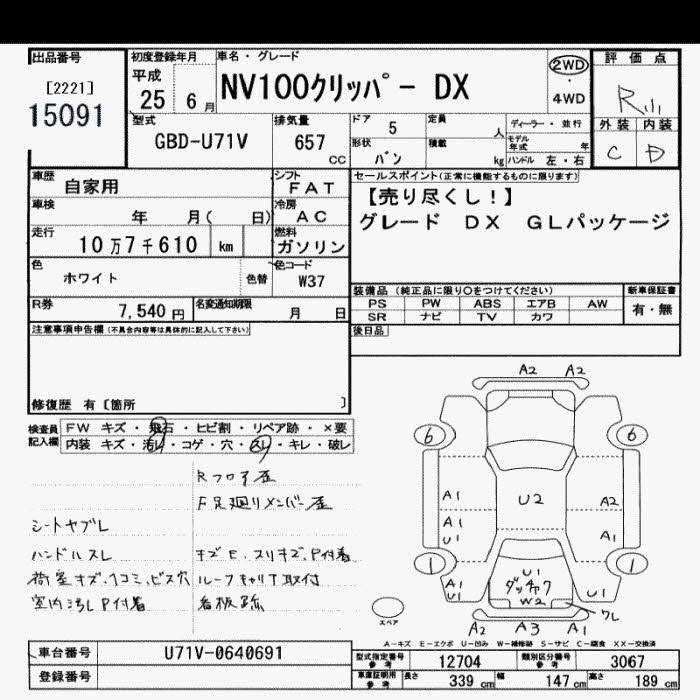 出品番号 初度登録年月 車名・グレード 評価点
[2221] 平成 NV100クリッパー DX 2WD
15091 25 6月 ・ 4WD R
型式 排気量 ドア 5 定員 人 ディーラー・並行 外装 内装
GBD-U71V 657 CC 形状 バン 積載 kg モデル年式 年 C D
ハンドル 左・右
車歴 自家用 シフト FAT セールスポイント(正常に機能するものに限ります)
車検 年 月( 日) 冷房 AC 【売り尽くし!】
走行 10万7千610 km 燃料 ガソリン グレード DX GLパッケージ
色 ホワイト 色替 色コード W37
装備品(純正品に限り○をつけてください) 新車保証書
R券 7,540円 名変通知期限 月 日 PS PW ABS エアB AW 有・無
SR ナビ TV カワ
注意事項申告欄(不具合内容等は具体的に記入して下さい) 後日品
修復歴 有〔箇所 〕
検査員記入欄 FW キズ・飛石・ヒビ割・リペア跡・×要
内装 キズ・汚レ・コゲ・穴・スレ・キレ・破レ
Rフロア歪
F足廻りメンバー歪
シートヤブレ
ハンドルスレ キズE、スリキズ、P付着
荷室キズ、ヘコミ、ビス穴 ルーフキャリア取付
室内汚レP付着 看板跡
A2 A2
6 6
A1 U2 A2
A1 U1 A1
1 1
A1 U1 U1 ダッチャク W2 U1
ワレ
A2 A3 A1
スペア
A−キズ E−エクボ U−凹み W−補修跡 S−サビ C−腐食 XX−交換済
車台番号 U71V-0640691 型式指定番号 参考 12704 類別区分番号 参考 3067
登録番号 車庫証明用 参考 長さ 339 cm 幅 147 cm 高さ 189 cm